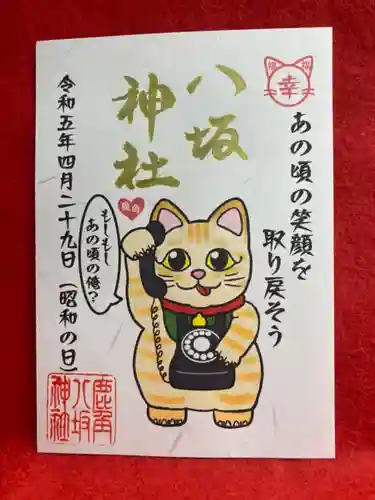 福 福
幸
あの頃の笑顔を
取り戻そう
八坂
神社
鹿角
もしもし
あの頃の俺?
令和五年四月二十九日(昭和の日)
鹿角
八坂
神社